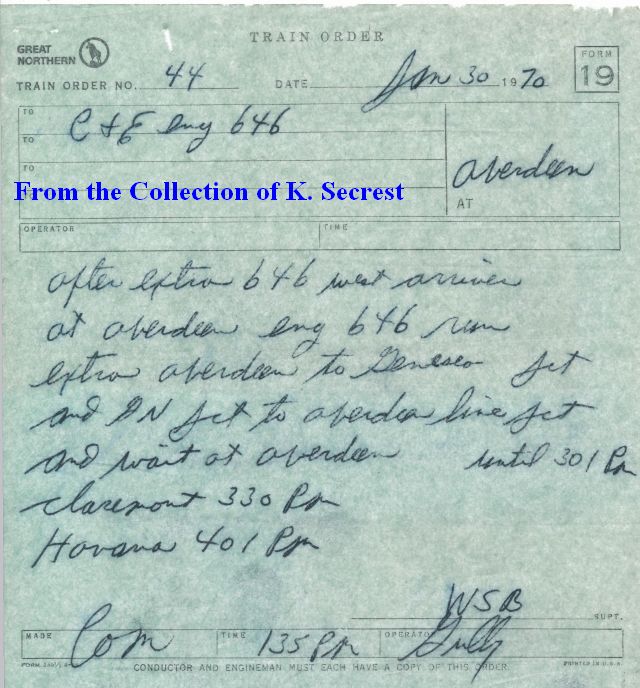 TRAIN ORDER
GREAT
NORTHERN
FORM
19
TRAIN ORDER NO. 44 DATE Jan 30 1970
TO C & E eng 646
TO
TO
From the Collection of K. Secrest
Aberdeen
AT
OPERATOR TIME
after extra 646 west arrives
at aberdeen eng 646 run
extra aberdeen to Geneseo Jct
and GN Jct to aberdeen line Jct
and wait at aberdeen until 301 Pm
Claremont 330 Pm
Havana 401 Pm
WSB
SUPT.
MADE Com TIME 135 Pm OPERATOR
FORM
CONDUCTOR AND ENGINEMAN MUST EACH HAVE A COPY OF THIS ORDER.
PRINTED IN U.S.A.